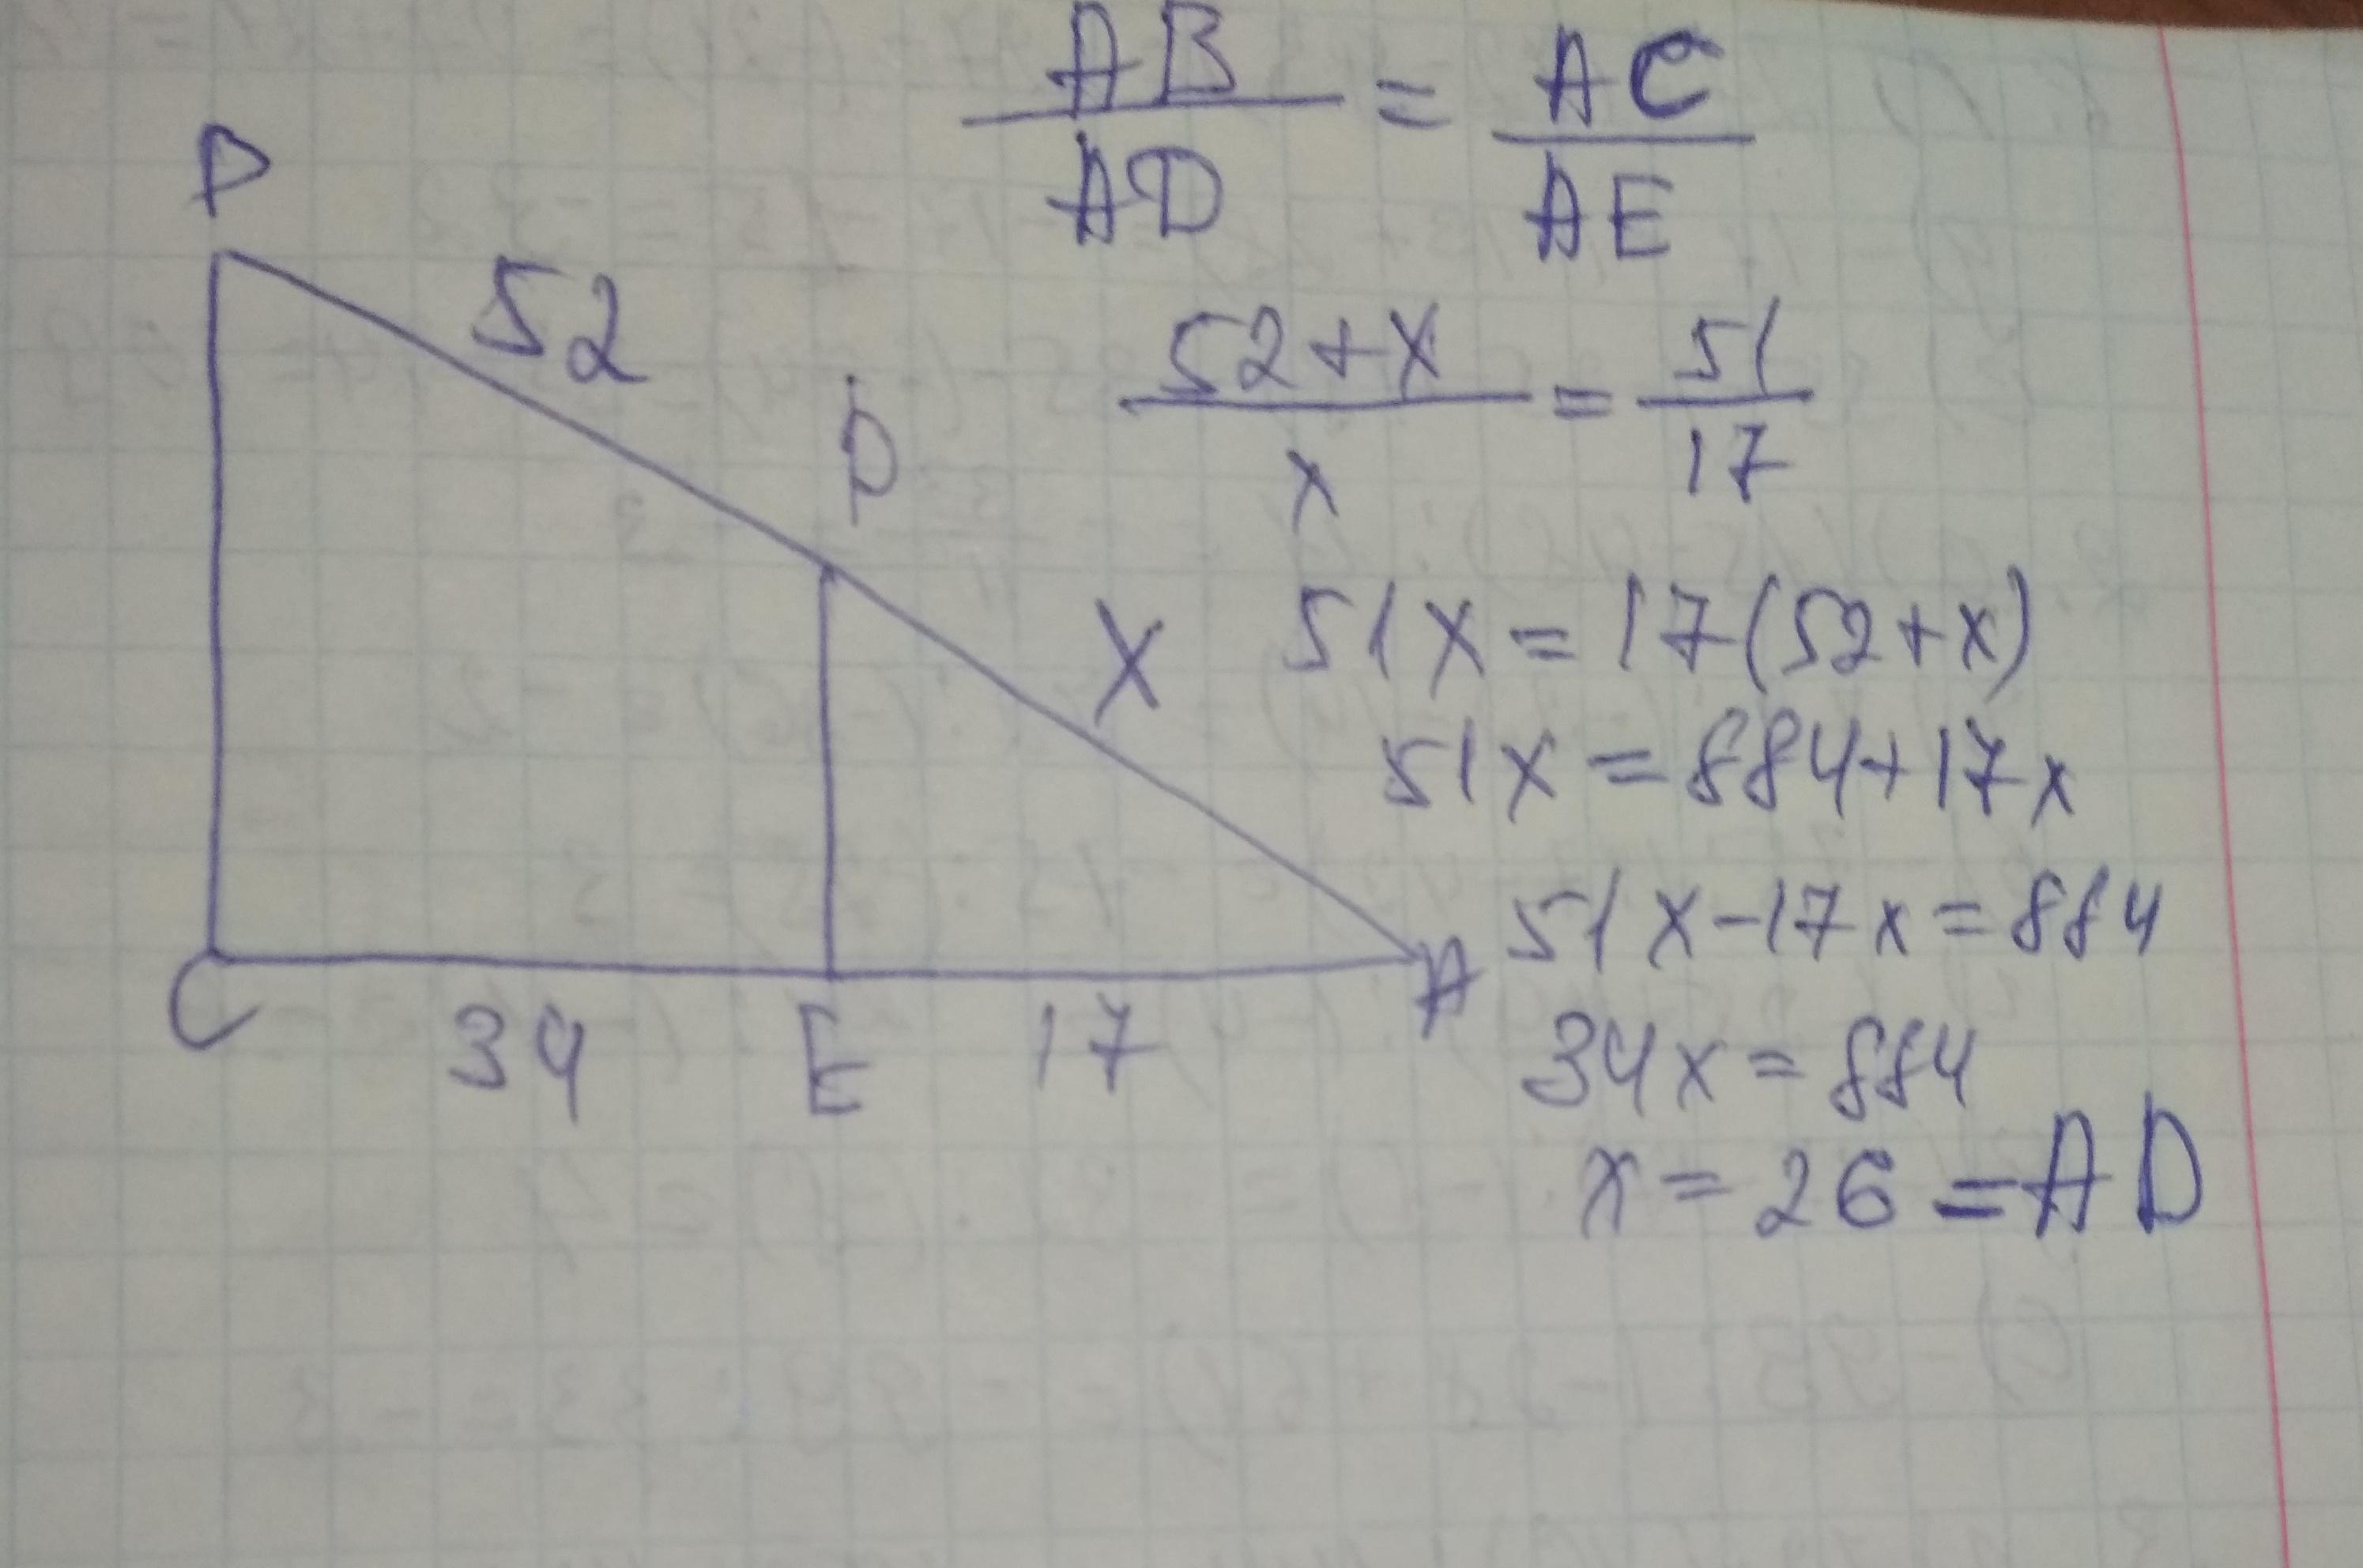 AB / AD = AC / AE
P
52
D
52+x / x = 51 / 17
X
51x = 17(52+x)
51x = 884+17x
51x-17x=884
C
34
E
17
A
34x=884
x=26=AD